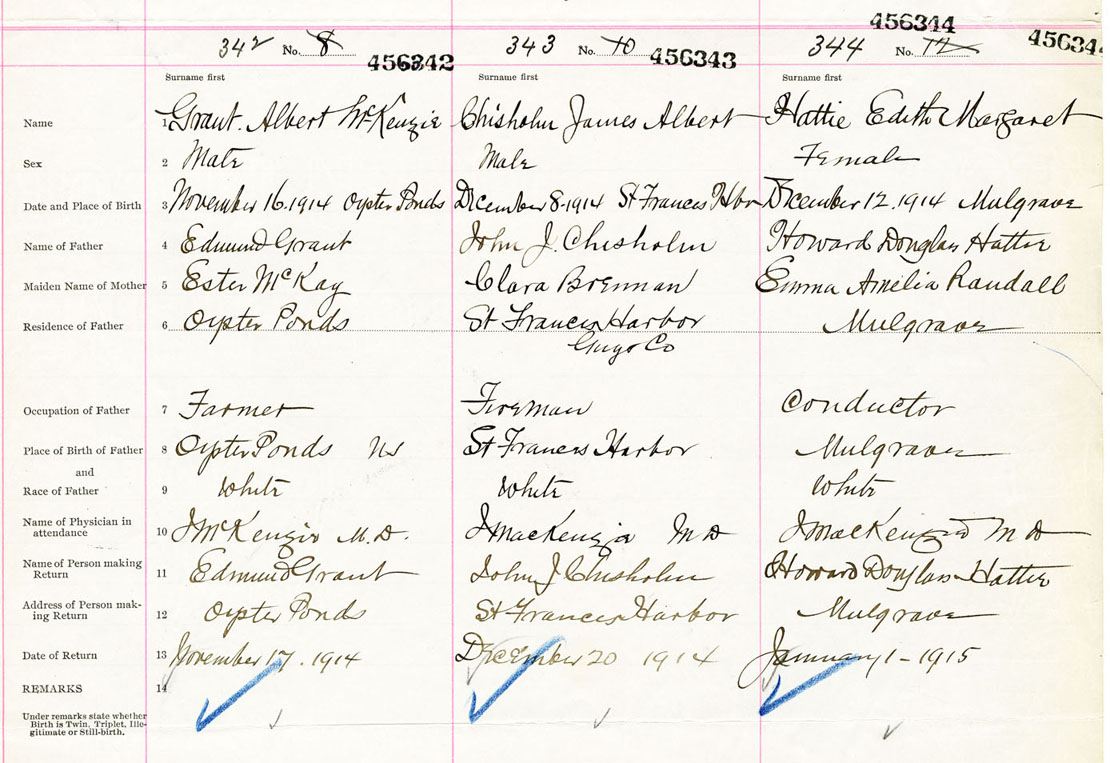 456344
342 No. 8 456342 343 No. 10 456343 344 No. 12 45634
Surname first Surname first Surname first
Name 1 Grant. Albert McKenzie Chisholm James Albert Hattie Edith Margaret
Sex 2 Male Male Female
Date and Place of Birth 3 November 16. 1914 Oyster Ponds December 8-1914 St Frances Hbor December 12. 1914 Mulgrave
Name of Father 4 Edmund Grant John J. Chisholm Howard Douglas Hattie
Maiden Name of Mother 5 Ester McKay Clara Brennan Emma Amelia Randall
Residence of Father 6 Oyster Ponds St Frances Harbor Mulgrave
Guys Co
Occupation of Father 7 Farmer Fireman Conductor
Place of Birth of Father 8 Oyster Ponds NS St Frances Harbor Mulgrave
and
Race of Father 9 White White White
Name of Physician in
attendance 10 J McKenzie M.D. J MacKenzie M D J MacKenzie M D
Name of Person making
Return 11 Edmund Grant John J Chisholm Howard Douglas Hattie
Address of Person mak-
ing Return 12 Oyster Ponds St Frances Harbor Mulgrave
Date of Return 13 November 17. 1914 December 20 1914 January 1-1915
REMARKS 14
Under remarks state whether
Birth is Twin, Triplet, Ille-
gitimate or Still-birth.